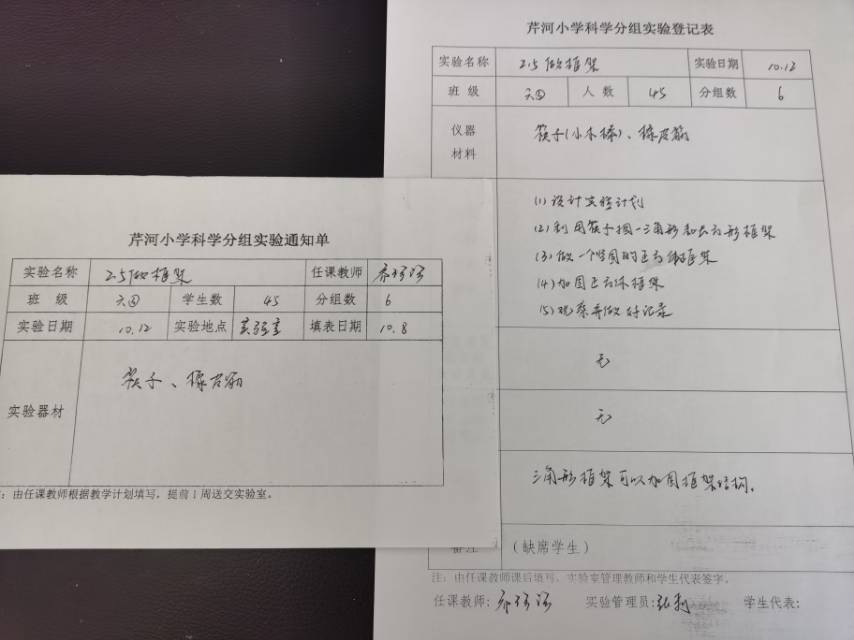 芹河小学科学分组实验登记表
实验名称 2.5做框架 实验日期 10.12
班 级 六④ 人 数 45 分组数 6
仪器
材料
筷子(小木棒)、橡皮筋
(1)设计实验计划
(2)利用筷子捆一三角形和长方形框架
(3)做一个坚固的正方体框架
(4)加固正方体框架
(5)观察并做好记录
无
无
三角形框架可以加固框架结构。
备注 (缺席学生)
注:由任课教师课后填写,实验室管理教师和学生代表签字。
任课教师: 实验管理员: 学生代表:
芹河小学科学分组实验通知单
实验名称 2.5做框架 任课教师
班 级 六④ 学生数 45 分组数 6
实验日期 10.12 实验地点 实验室 填表日期 10.8
实验器材
筷子、橡皮筋
:由任课教师根据教学计划填写,提前1周送交实验室。